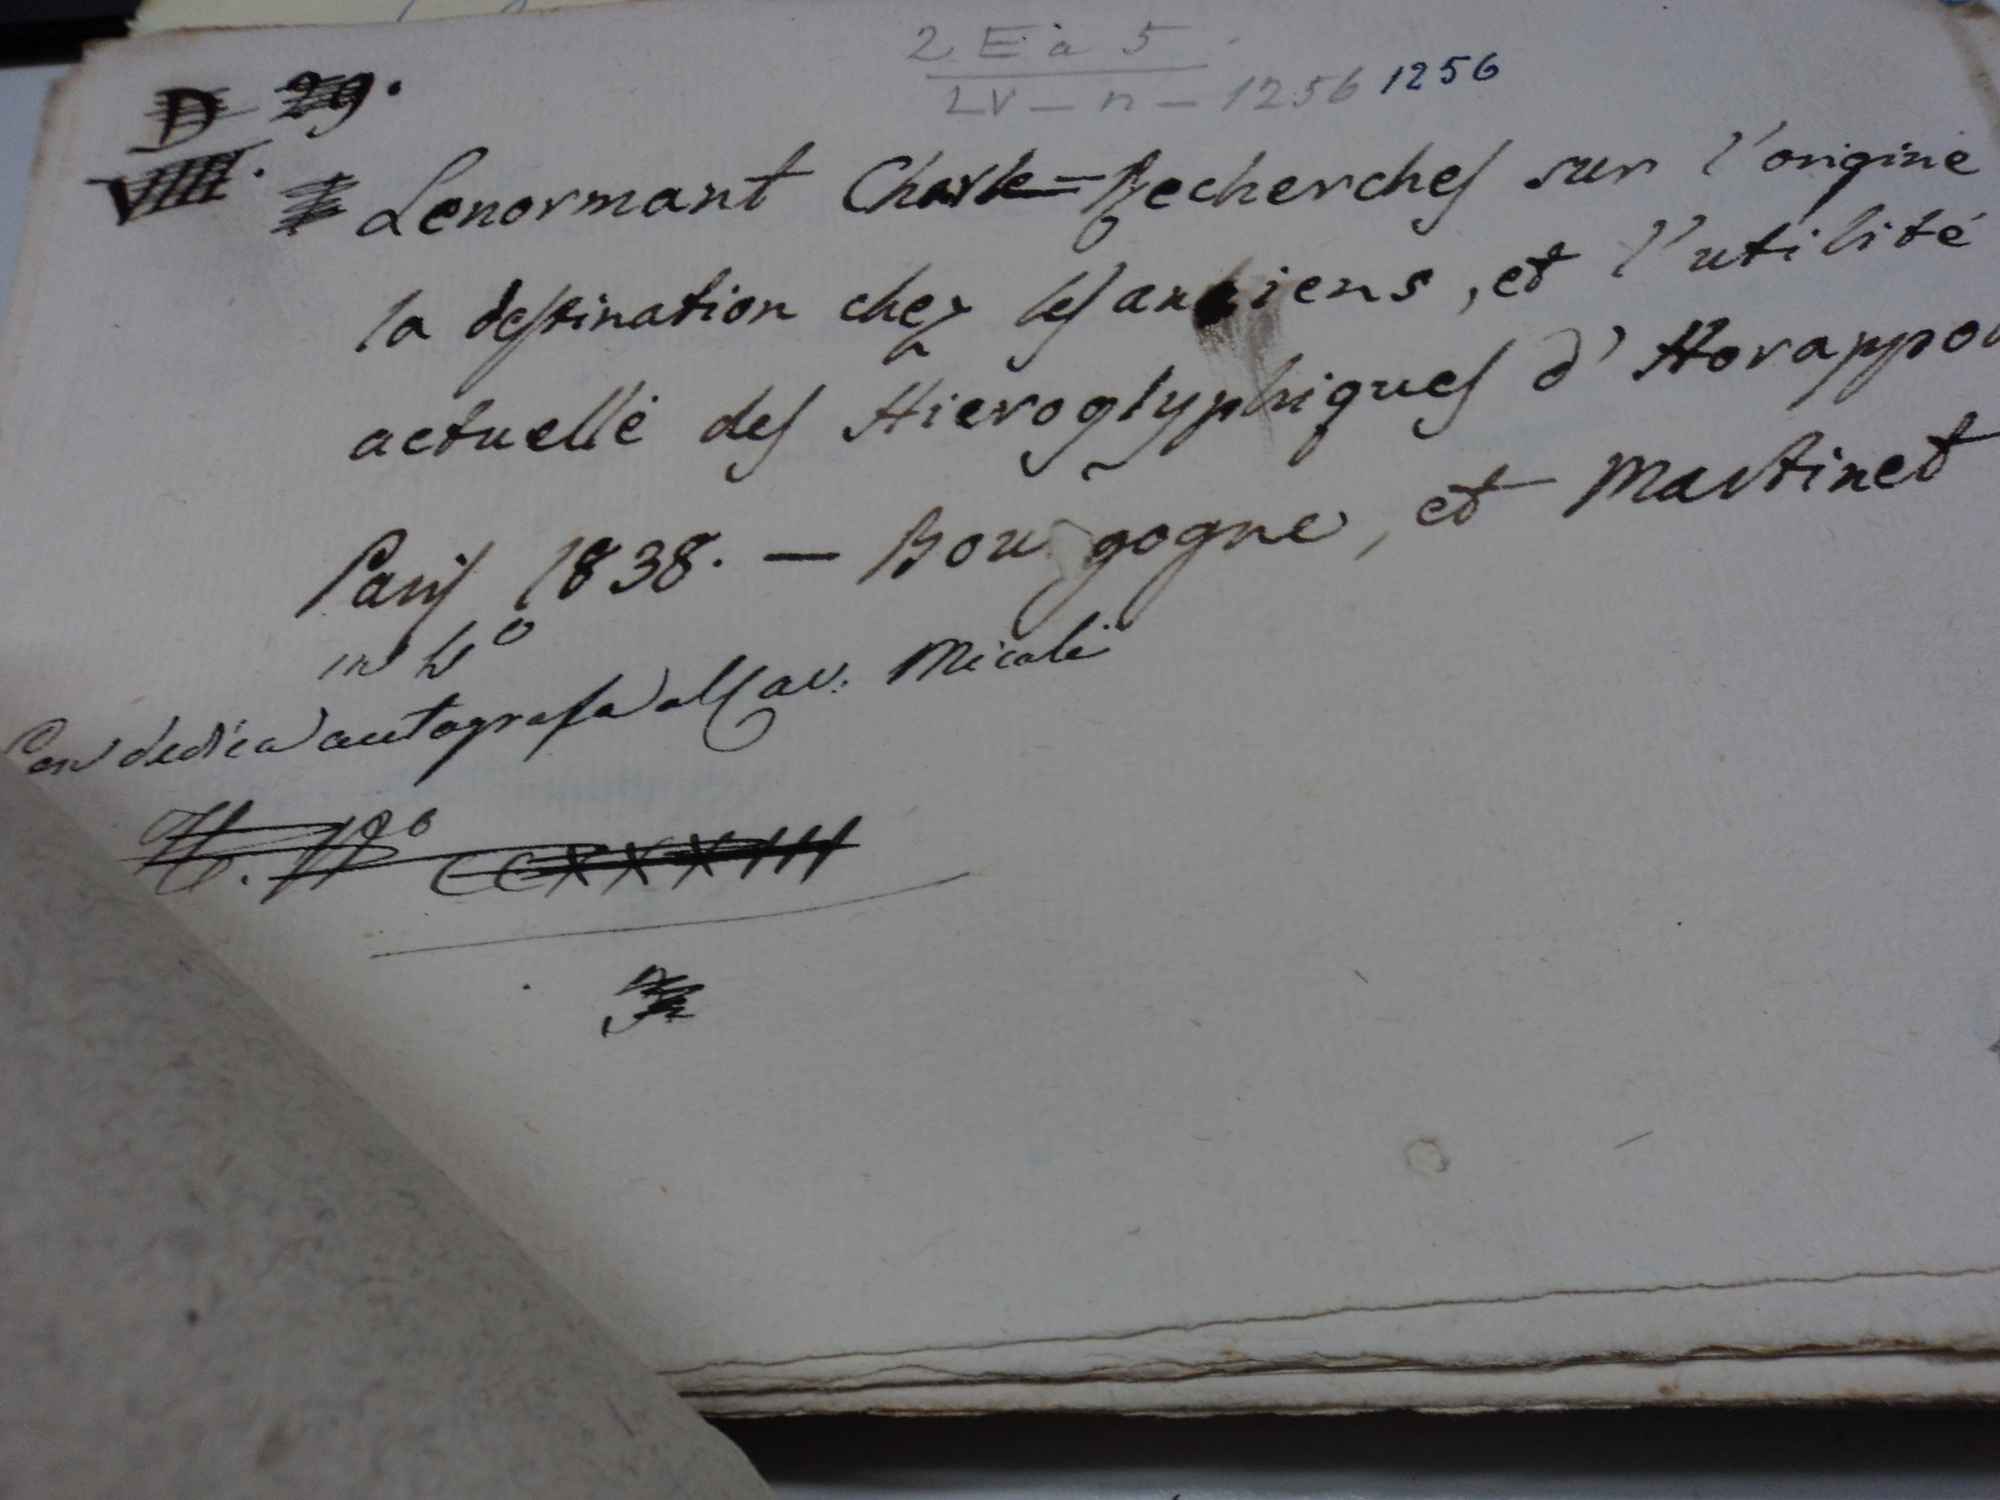 2 E à 5
LV - n - 1256 1256
D 29.
VIII.
Lenormant Charle = Recherches sur l'origine
la destination chez les anciens, et l'utilité
actuelle des Hieroglyphiques d'Horappo
Paris 1838. — Bourgogne, et Martinet
in 4º
Con dedica autografa al Cav. Micali
CCXXXIII